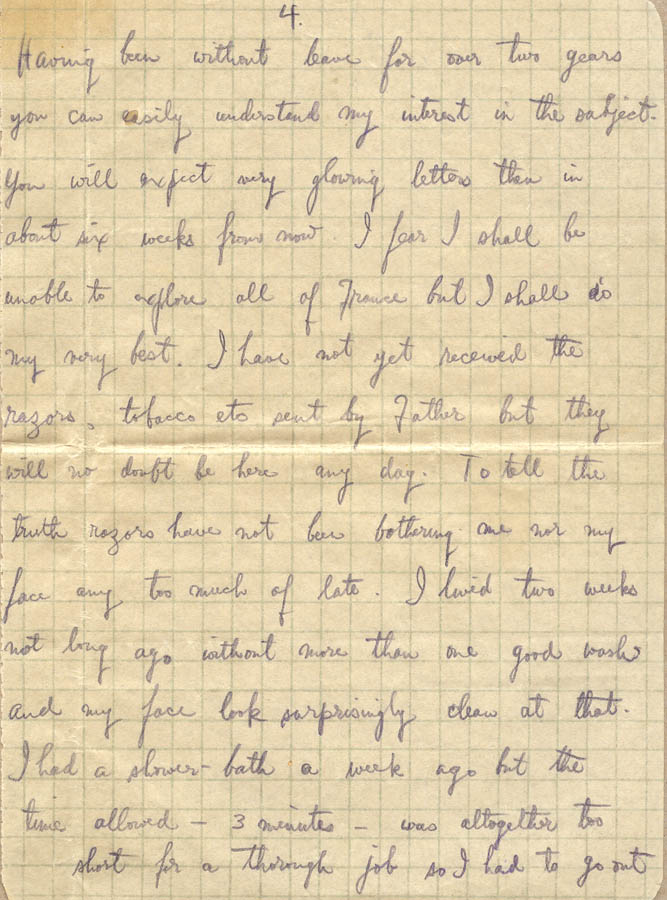 4.
Having been without leave for over two years
you can easily understand my interest in the subject.
You will expect very glowing letters then in
about six weeks from now. I fear I shall be
unable to explore all of France but I shall do
my very best. I have not yet received the
razors, tobacco etc sent by Father but they
will no doubt be here any day. To tell the
truth razors have not been bothering me nor my
face any too much of late. I lived two weeks
not long ago without more than one good wash
and my face look surprisingly clean at that.
I had a shower-bath a week ago but the
time allowed - 3 minutes - was altogether too
short for a thorough job so I had to go out